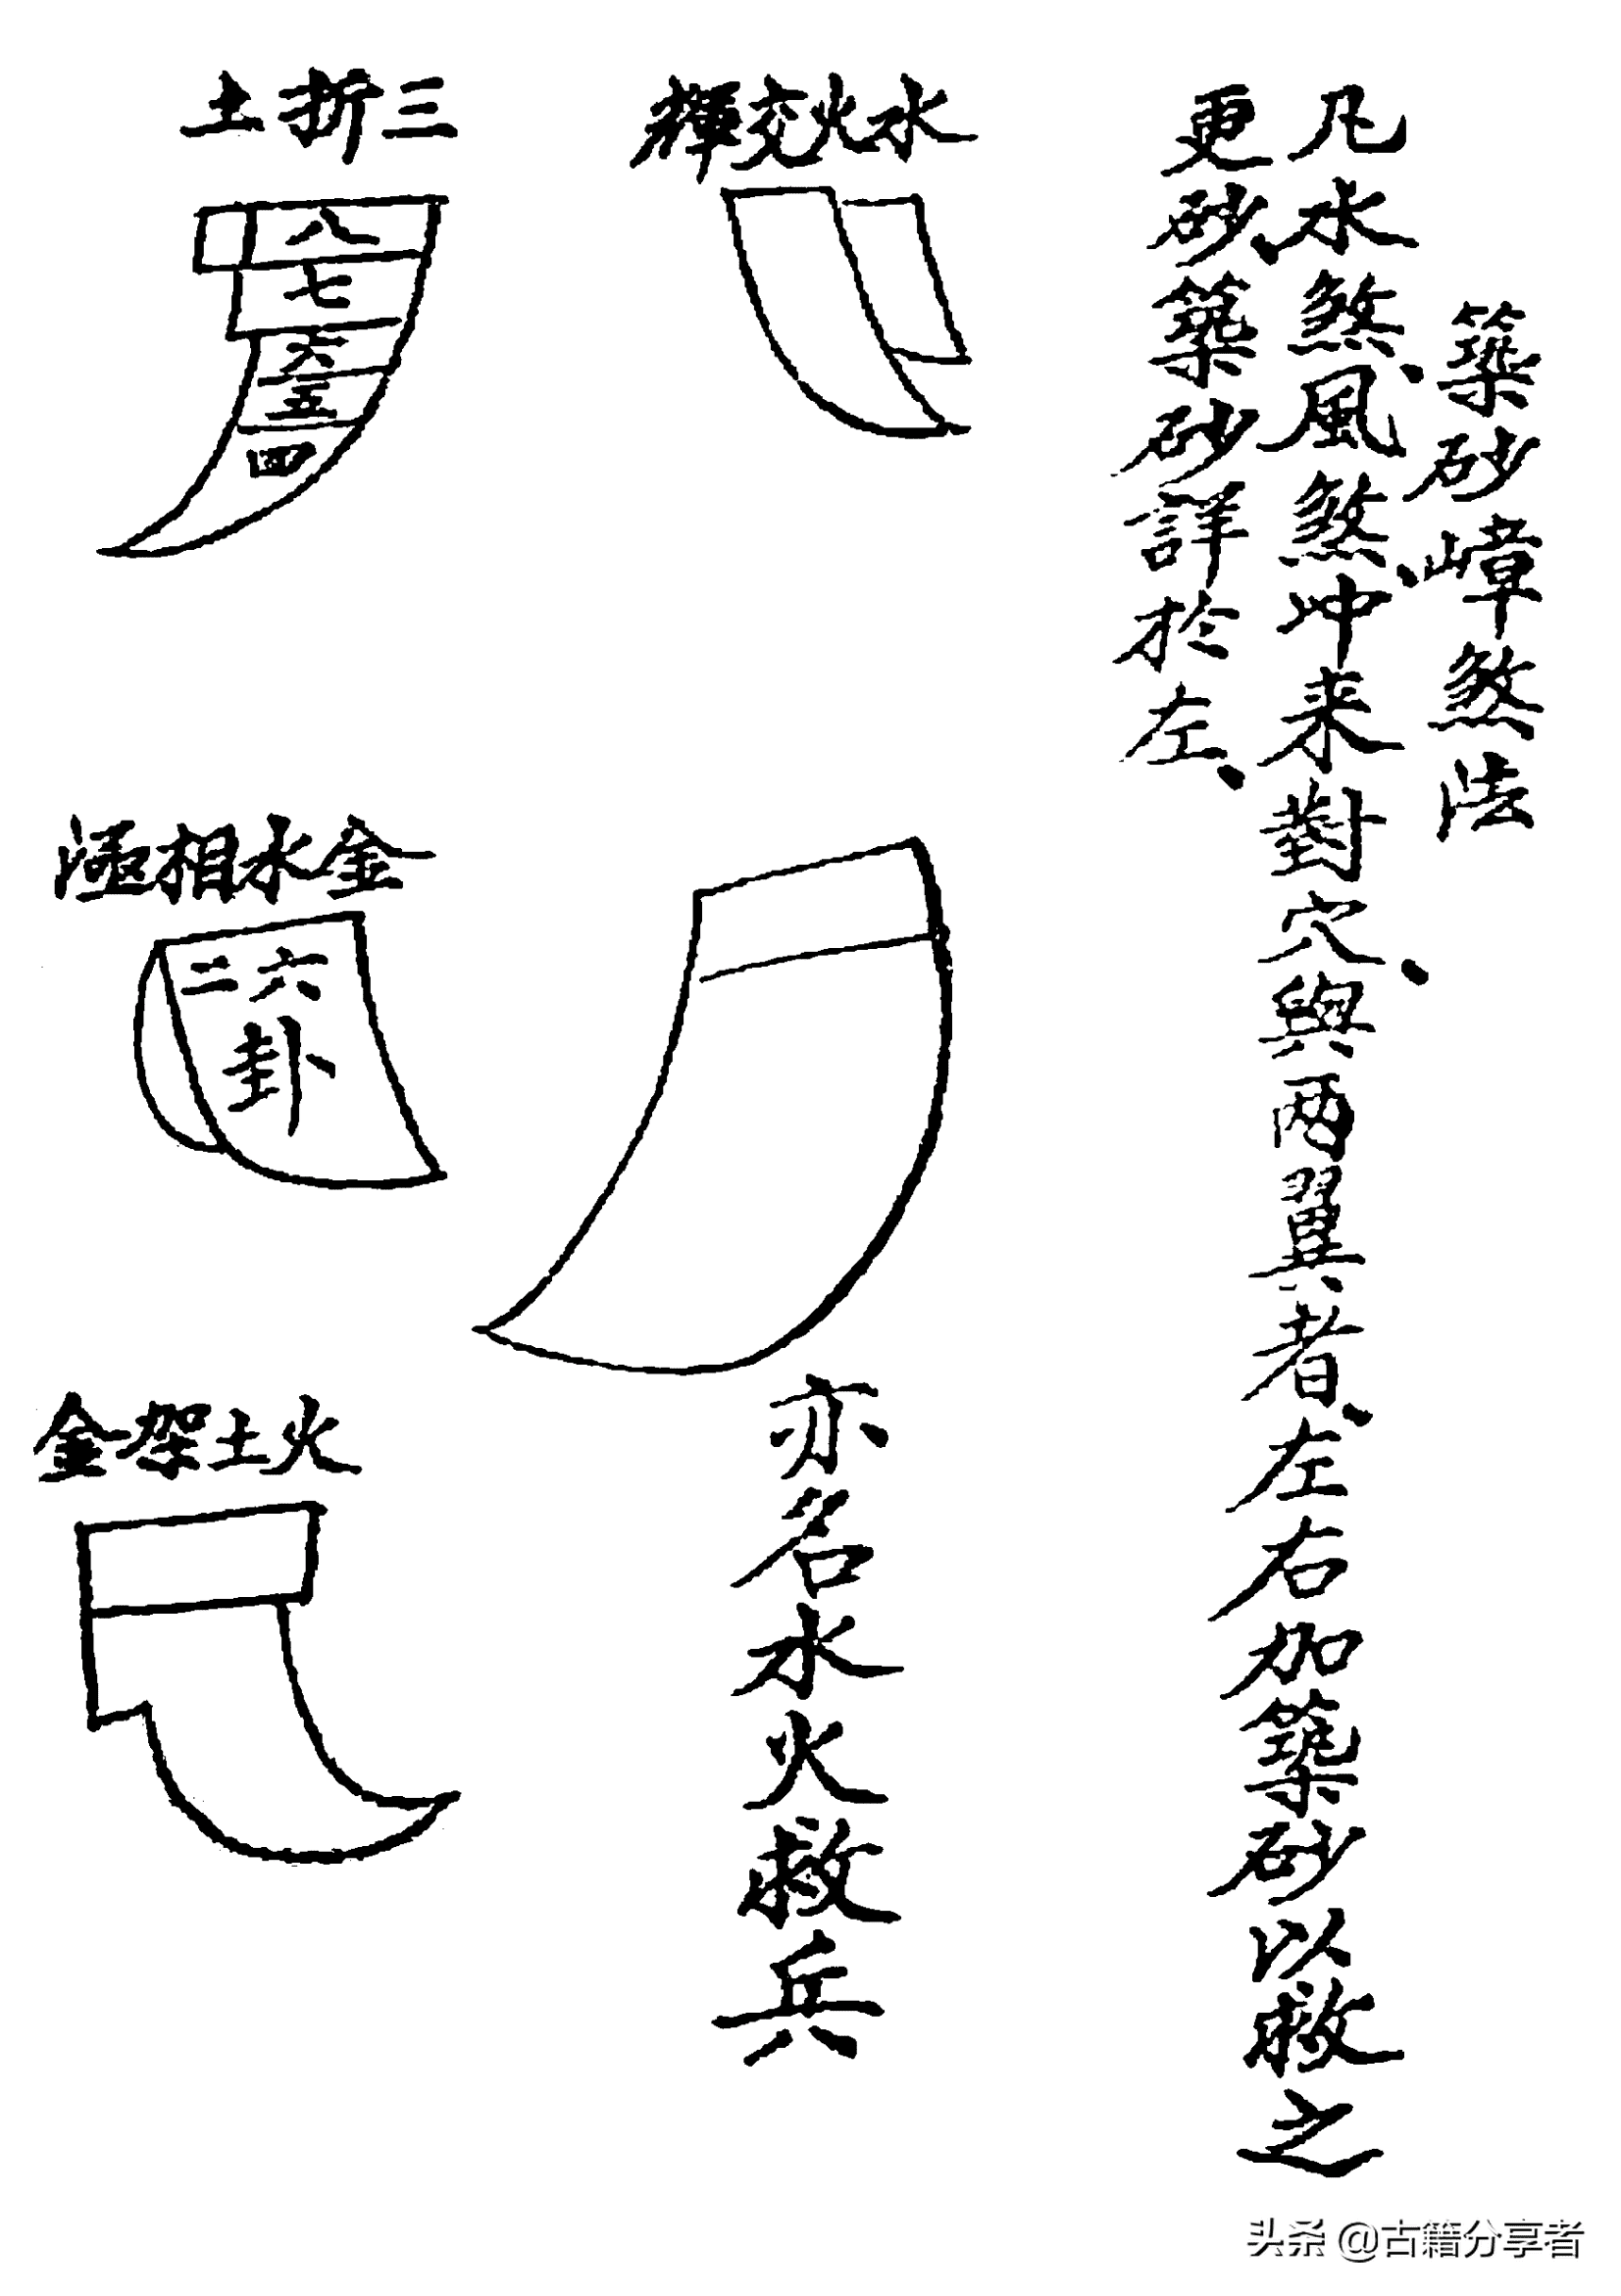 築砂嶂煞法
凡水煞、風煞、冲来對穴、與两翼者、左右加築砂以救之
更砂、築砂詳於左、
水火交輝
亦名水火救兵
三折土
八
七
六
五
四
金水相
六二
卦
火土架金
头条 @古籍分享者